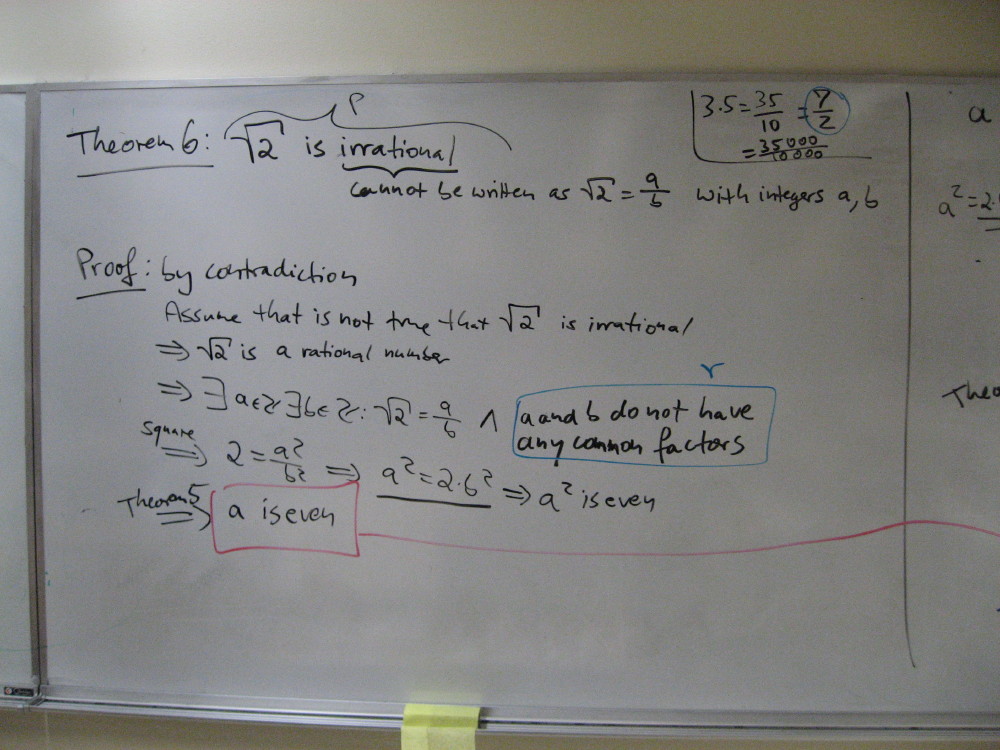 P
Theorem 6: √2 is irrational
cannot be written as √2 = a/b with integers a, b
3.5 = 35/10 = 7/2
= 35000/10000
Proof: by contradiction
Assume that is not true that √2 is irrational
⇒ √2 is a rational number
⇒ ∃ a ∈ ℤ ∃ b ∈ ℤ : √2 = a/b ∧ a and b do not have
any common factors
r
Square ⇒ 2 = a²/b² ⇒ a² = 2·b² ⇒ a² is even
Theorem 5 ⇒ a is even
a
a² = 2.
Theo